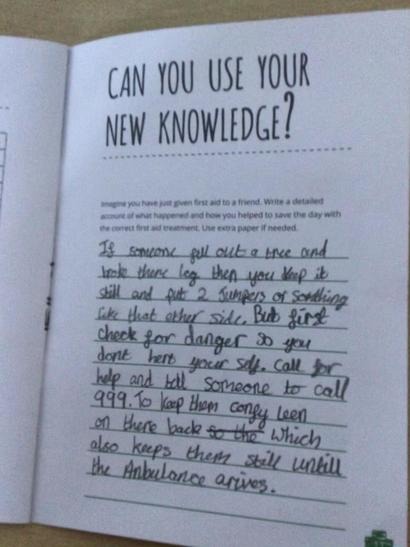 CAN YOU USE YOUR
NEW KNOWLEDGE?
Imagine you have just given first aid to a friend. Write a detailed
account of what happened and how you helped to save the day with
the correct first aid treatment. Use extra paper if needed.
If someone fell out a tree and
broke there leg then you keep it
still and put 2 Jumpers or Somthing
like that other side. But first
check for danger So you
dont hert your self. Call for
help and tell someone to call
999. To keep them comfy leen
on there back so the which
also keeps them still untill
the Anbulance arives.